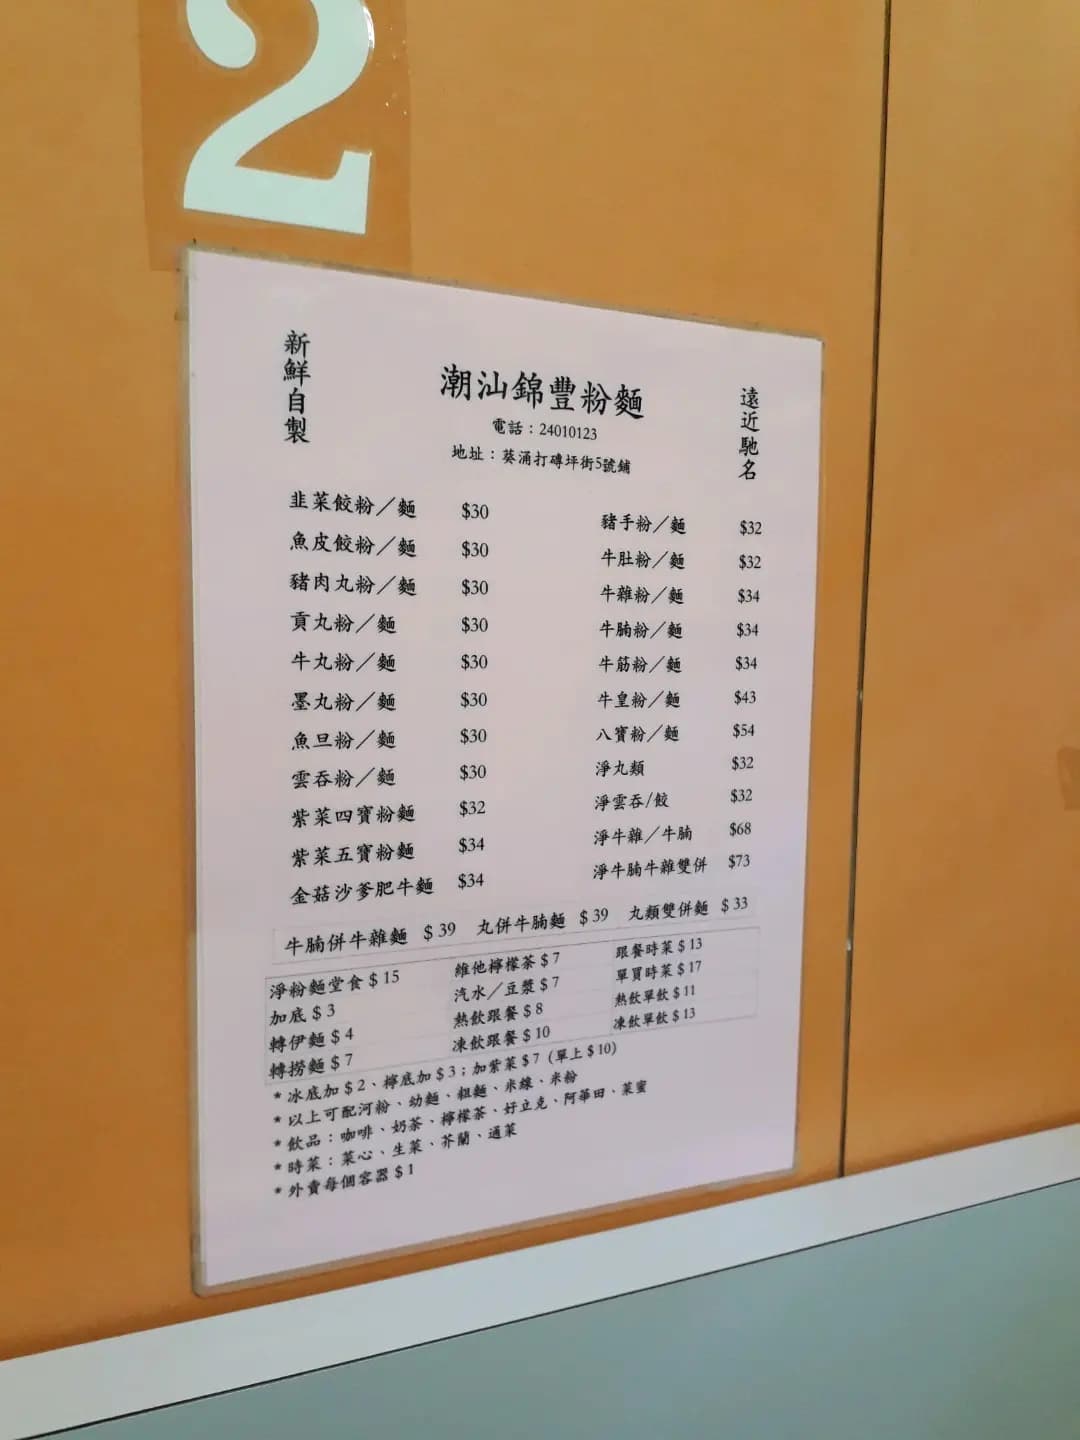 2
新鮮自製
潮汕錦豐粉麵
遠近馳名
電話：24010123
地址：葵涌打磚坪街5號鋪
韭菜餃粉／麵 $30
魚皮餃粉／麵 $30
豬肉丸粉／麵 $30
貢丸粉／麵 $30
牛丸粉／麵 $30
墨丸粉／麵 $30
魚旦粉／麵 $30
雲吞粉／麵 $30
紫菜四寶粉麵 $32
紫菜五寶粉麵 $34
金菇沙爹肥牛麵 $34
豬手粉／麵 $32
牛肚粉／麵 $32
牛雜粉／麵 $34
牛腩粉／麵 $34
牛筋粉／麵 $34
牛皇粉／麵 $43
八寶粉／麵 $54
淨丸類 $32
淨雲吞/餃 $32
淨牛雜／牛腩 $68
淨牛腩牛雜雙併 $73
牛腩併牛雜麵 $39 丸併牛腩麵 $39 丸類雙併麵 $33
淨粉麵堂食 $15
加底 $3
轉伊麵 $4
轉撈麵 $7
維他檸檬茶 $7
汽水／豆漿 $7
熱飲跟餐 $8
凍飲跟餐 $10
跟餐時菜 $13
單買時菜 $17
熱飲單飲 $11
凍飲單飲 $13
* 冰底加 $2、檸底加 $3；加紫菜 $7 (單上 $10)
* 以上可配河粉、幼麵、粗麵、米線、米粉
* 飲品：咖啡、奶茶、檸檬茶、好立克、阿華田、菜蜜
* 時菜：菜心、生菜、芥蘭、通菜
* 外賣每個容器 $1